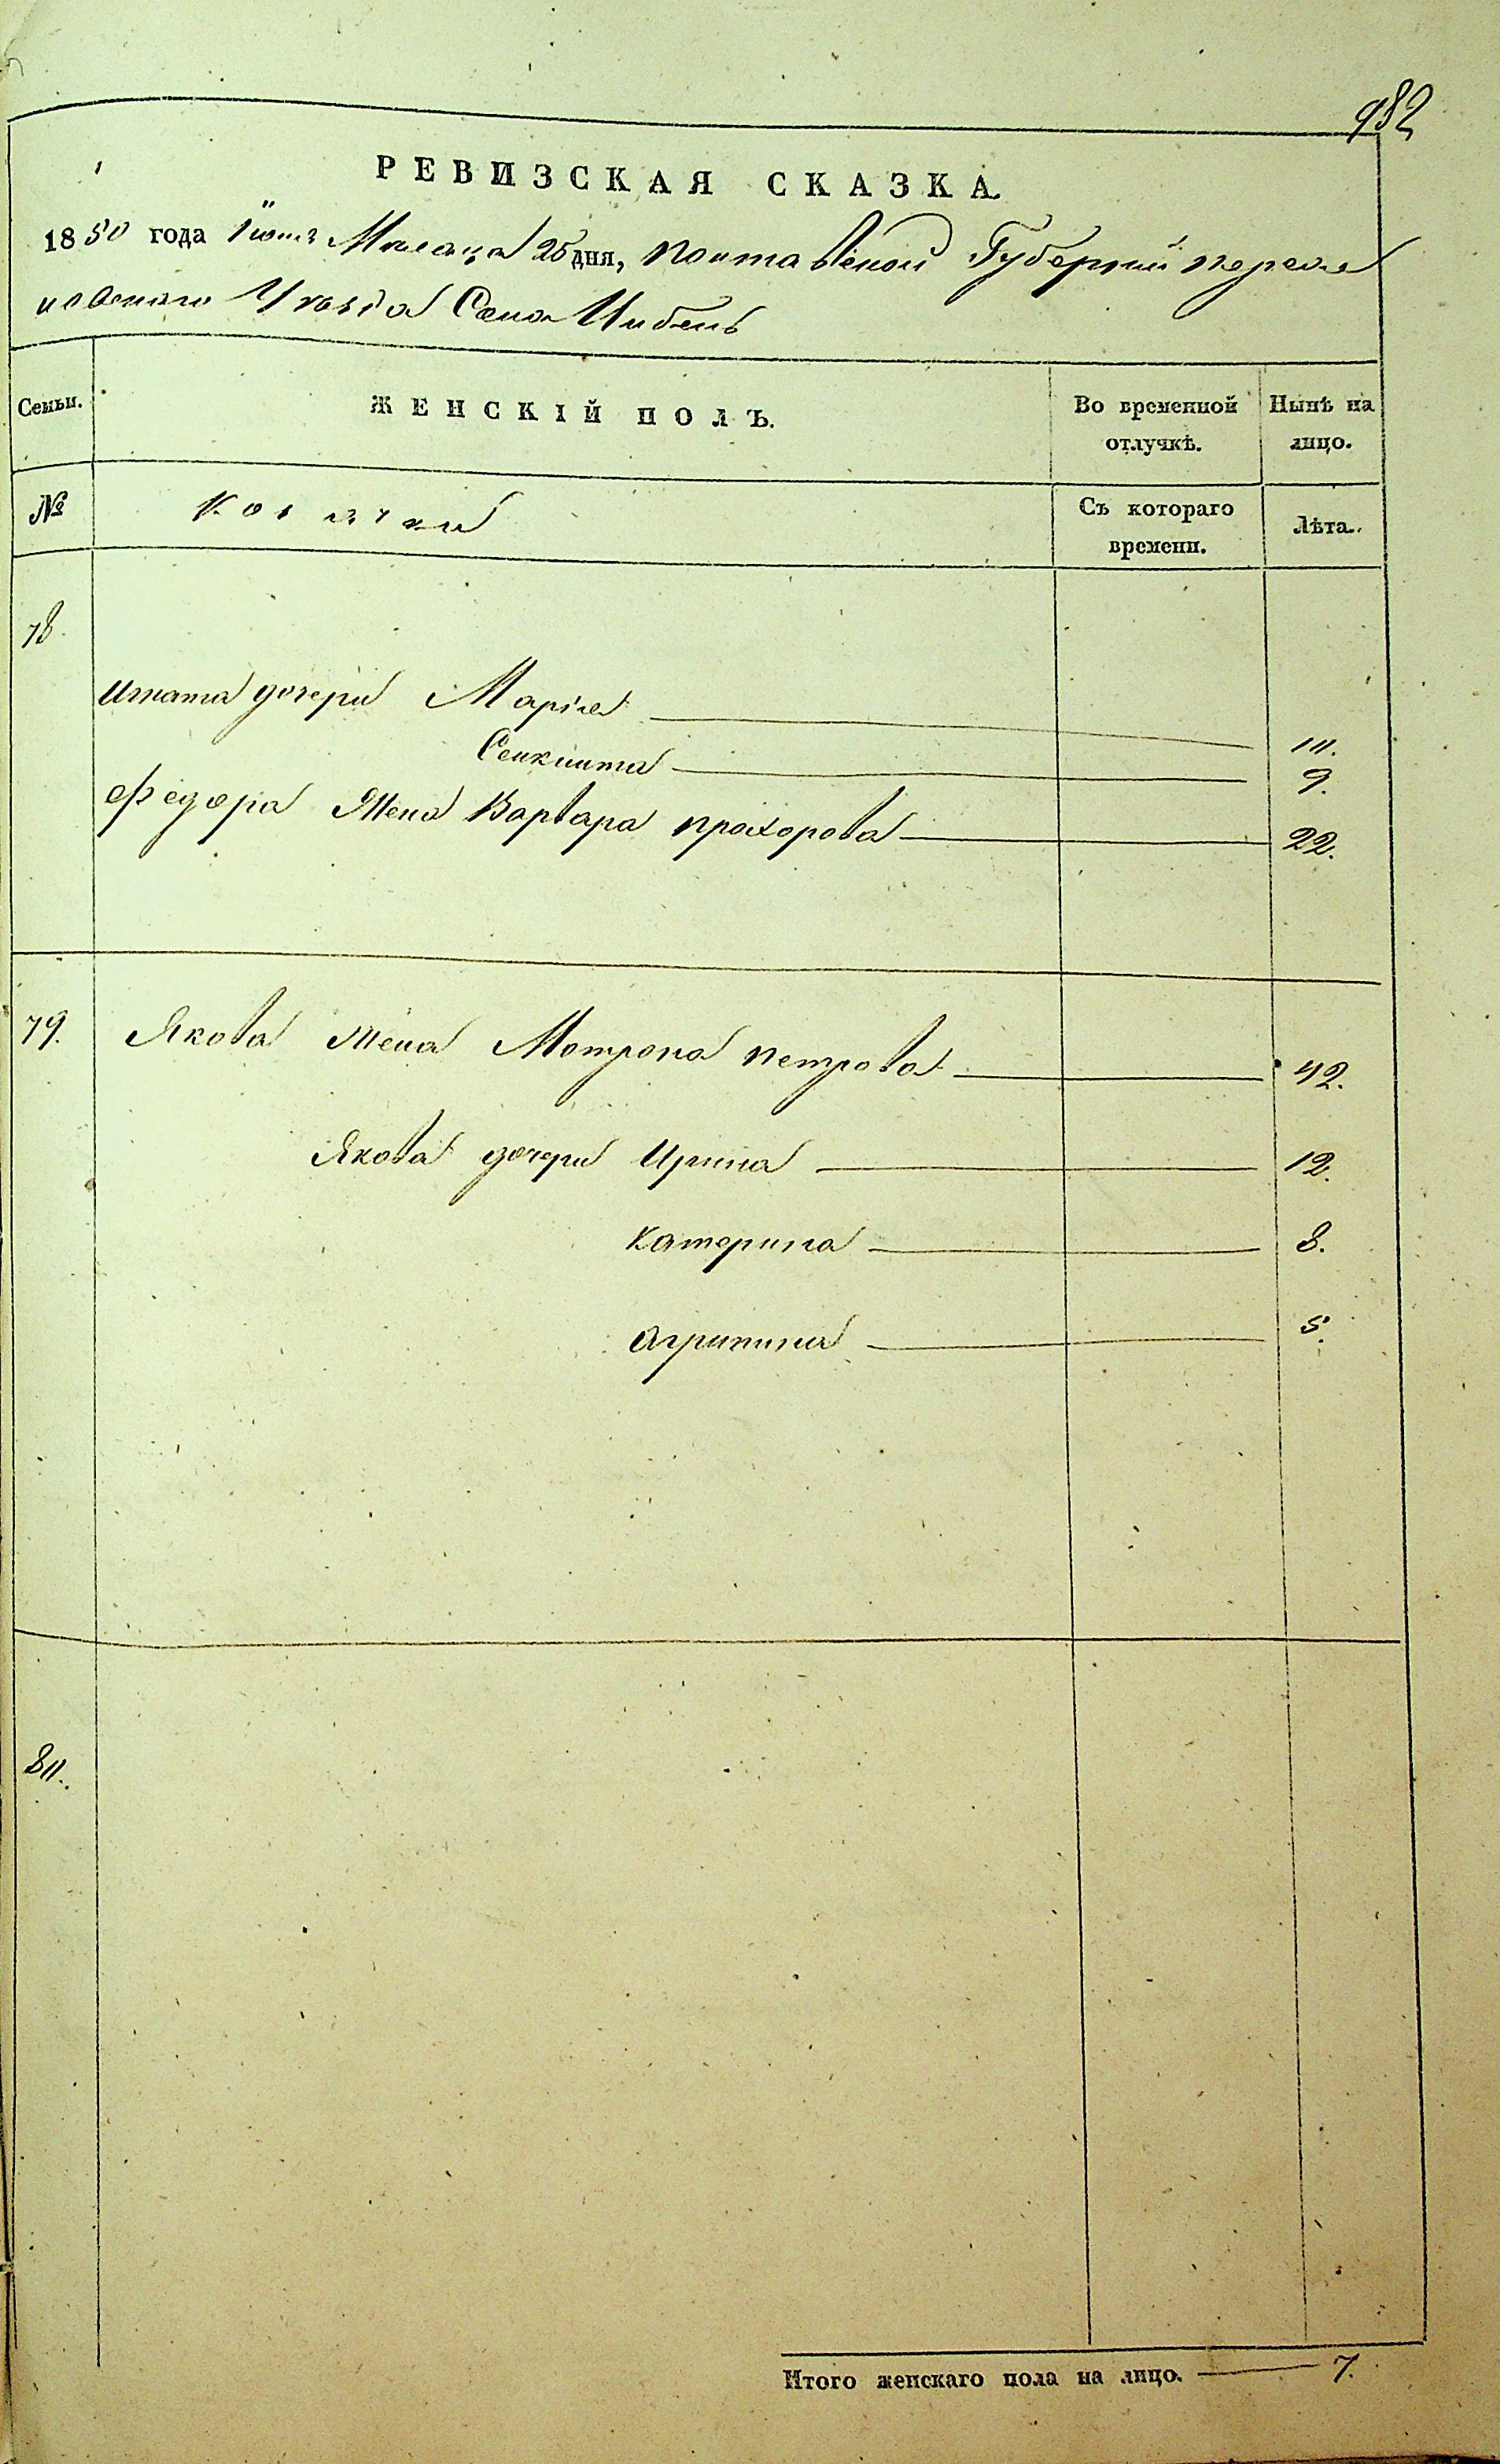 982
РЕВИЗСКАЯ СКАЗКА.
1850 года Іюня Месяца 25 дня, Полтавской Губерніи переяс
лавского Уезда Села Цибель
Семьи. ЖЕНСКІЙ ПОЛЪ. Во временной отлучкѣ. Нынѣ на лицо.
№ Козачки Съ котораго времени. Лѣта.
78.
Игната дочери Марія 10.
9.
Федора Жена Варвара прохорова 22.
79. Якова Жена Мотрона петрова 42.
Якова дочери Ирина 12.
Катерина 8.
Агрипина 5.
80.
Итого женскаго пола на лицо. 7.